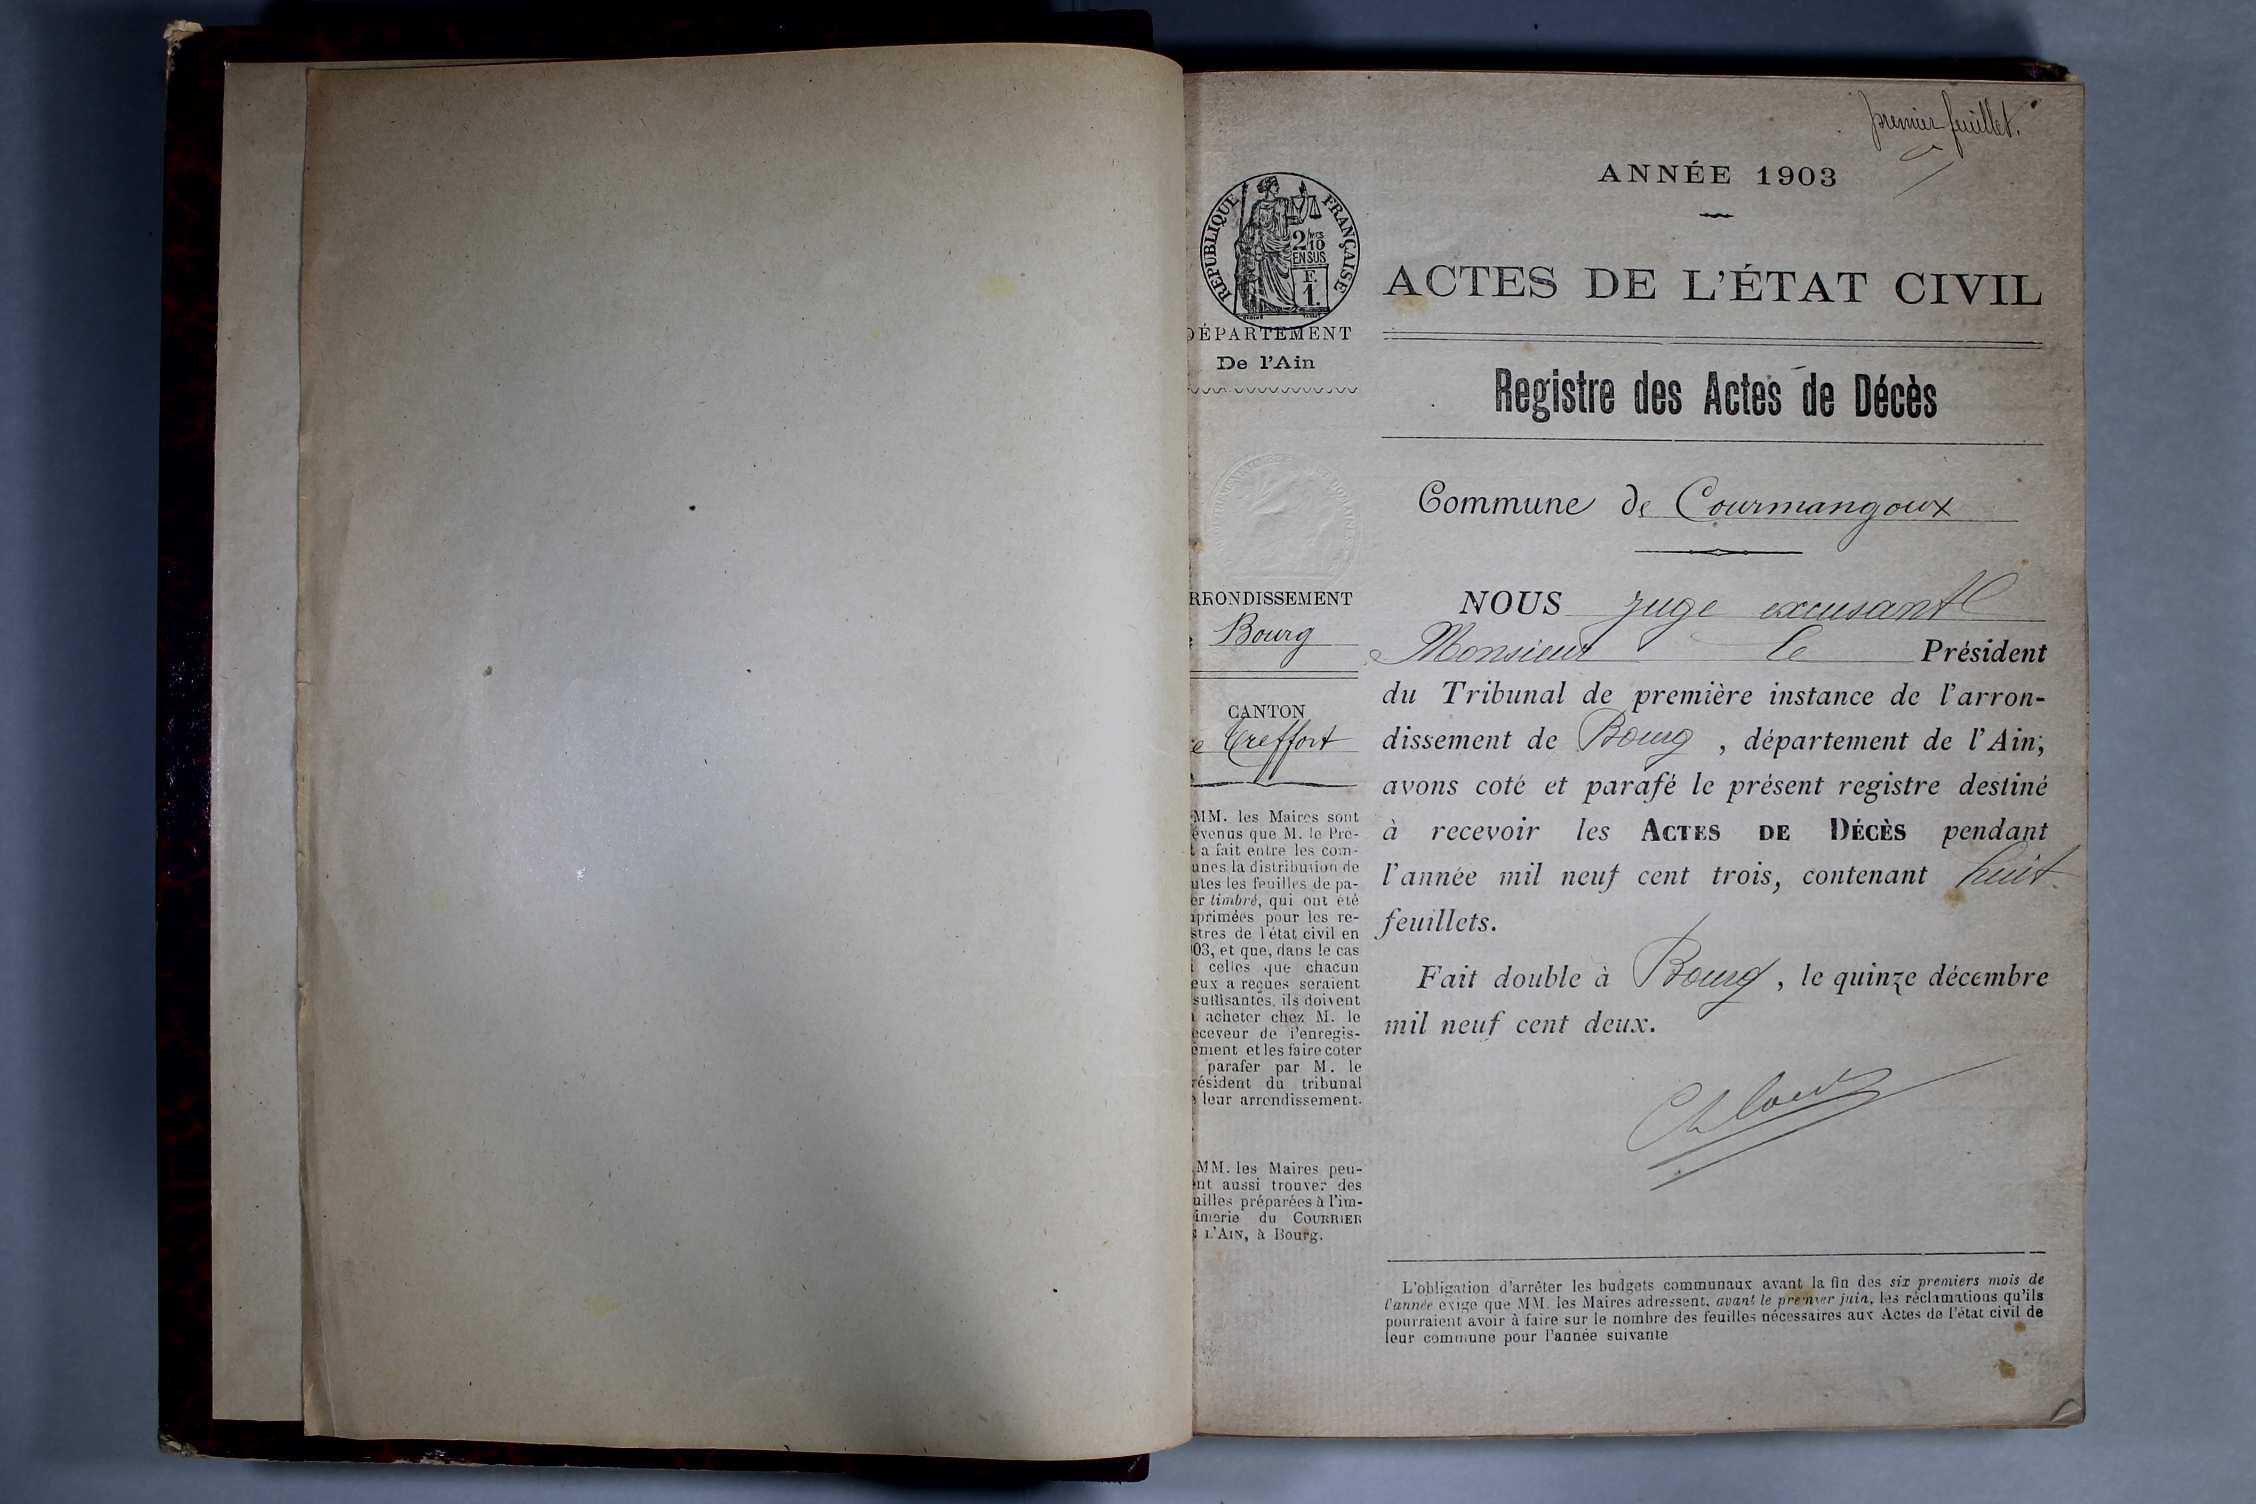 premier feuillet.
ANNÉE 1903
RÉPUBLIQUE FRANÇAISE
2/10
EN SUS
F.
1.
DÉPARTEMENT
De l'Ain
ACTES DE L'ÉTAT CIVIL
Registre des Actes de Décès
Commune de Courmangoux
RRONDISSEMENT
Bourg
CANTON
e Treffort
MM. les Maires sont
évenus que M. le Pré-
t a fait entre les com-
unes la distribution de
utes les feuilles de pa-
er timbré, qui ont été
primées pour les re-
stres de l'état civil en
03, et que, dans le cas
i celles que chacun
eux a reçues seraient
suffisantes, ils doivent
acheter chez M. le
eceveur de l'enregis-
ement et les faire coter
parafer par M. le
résident du tribunal
e leur arrondissement.
MM. les Maires peu-
nt aussi trouver des
uilles préparées à l'im-
imerie du COURRIER
L'AIN, à Bourg.
NOUS juge excusant
Monsieur le Président
du Tribunal de première instance de l'arron-
dissement de Bourg, département de l'Ain,
avons coté et parafé le présent registre destiné
à recevoir les ACTES DE DÉCÈS pendant
l'année mil neuf cent trois, contenant huit
feuillets.
Fait double à Bourg, le quinze décembre
mil neuf cent deux.
L'obligation d'arrêter les budgets communaux avant la fin des six premiers mois de
l'année exige que MM. les Maires adressent, avant le premier juin, les réclamations qu'ils
pourraient avoir à faire sur le nombre des feuilles nécessaires aux Actes de l'état civil de
leur commune pour l'année suivante